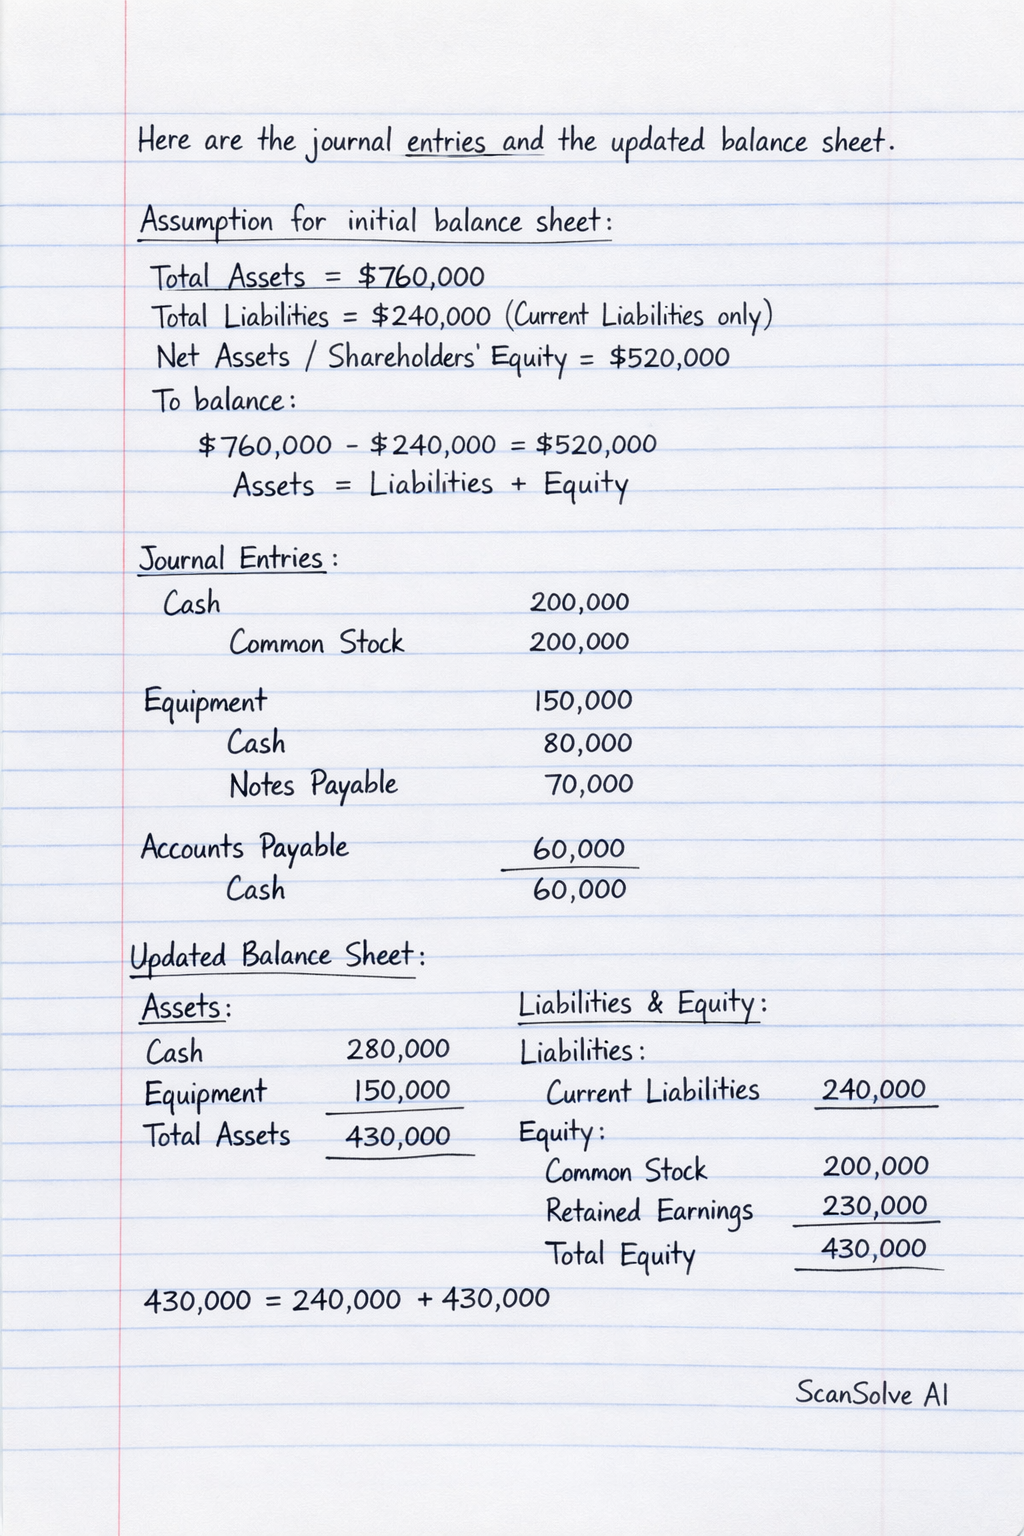 Here are the journal entries and the updated balance sheet.
Assumption for initial balance sheet:
Total Assets = $760,000
Total Liabilities = $240,000 (Current Liabilities only)
Net Assets / Shareholders' Equity = $520,000
To balance:
$760,000 - $240,000 = $520,000
Assets = Liabilities + Equity
Journal Entries:
Cash 200,000
Common Stock 200,000
Equipment 150,000
Cash 80,000
Notes Payable 70,000
Accounts Payable 60,000
Cash 60,000
Updated Balance Sheet:
Assets:
Cash 280,000
Equipment 150,000
Total Assets 430,000
Liabilities & Equity:
Liabilities:
Current Liabilities 240,000
Equity:
Common Stock 200,000
Retained Earnings 230,000
Total Equity 430,000
430,000 = 240,000 + 430,000
ScanSolve AI